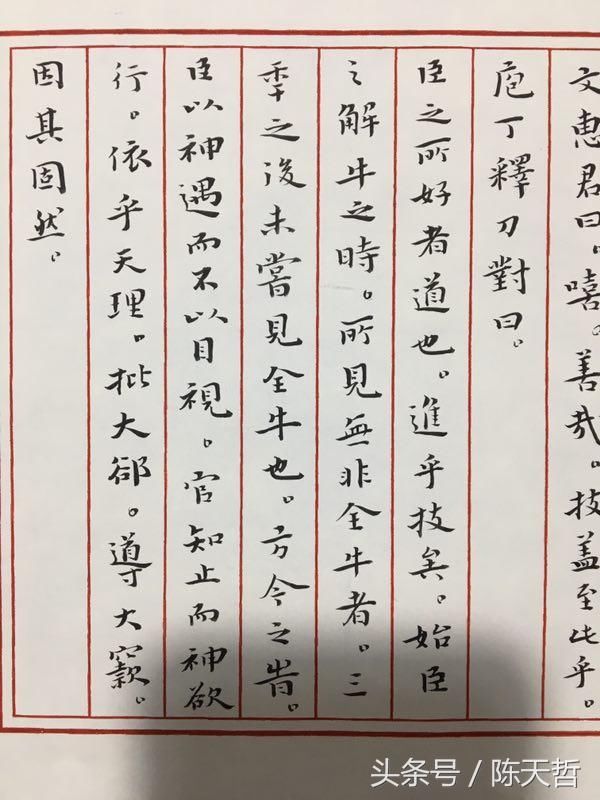 文惠君曰。嘻。善哉。技盖至此乎。
庖丁釋刀對曰。
臣之所好者道也。進乎技矣。始臣
之解牛之時。所見無非全牛者。三
年之後未嘗見全牛也。方今之旹。
臣以神遇而不以目視。官知止而神欲
行。依乎天理。批大郤。導大窾。
因其固然。
头条号 / 陈天哲